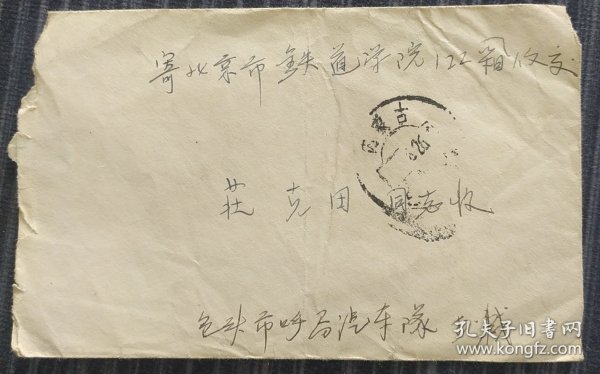 寄北京市铁道学院122箱收交
内蒙古
莊克田同志收
包头市呼局汽车隊
孔夫子旧书网
www.kongfz.com